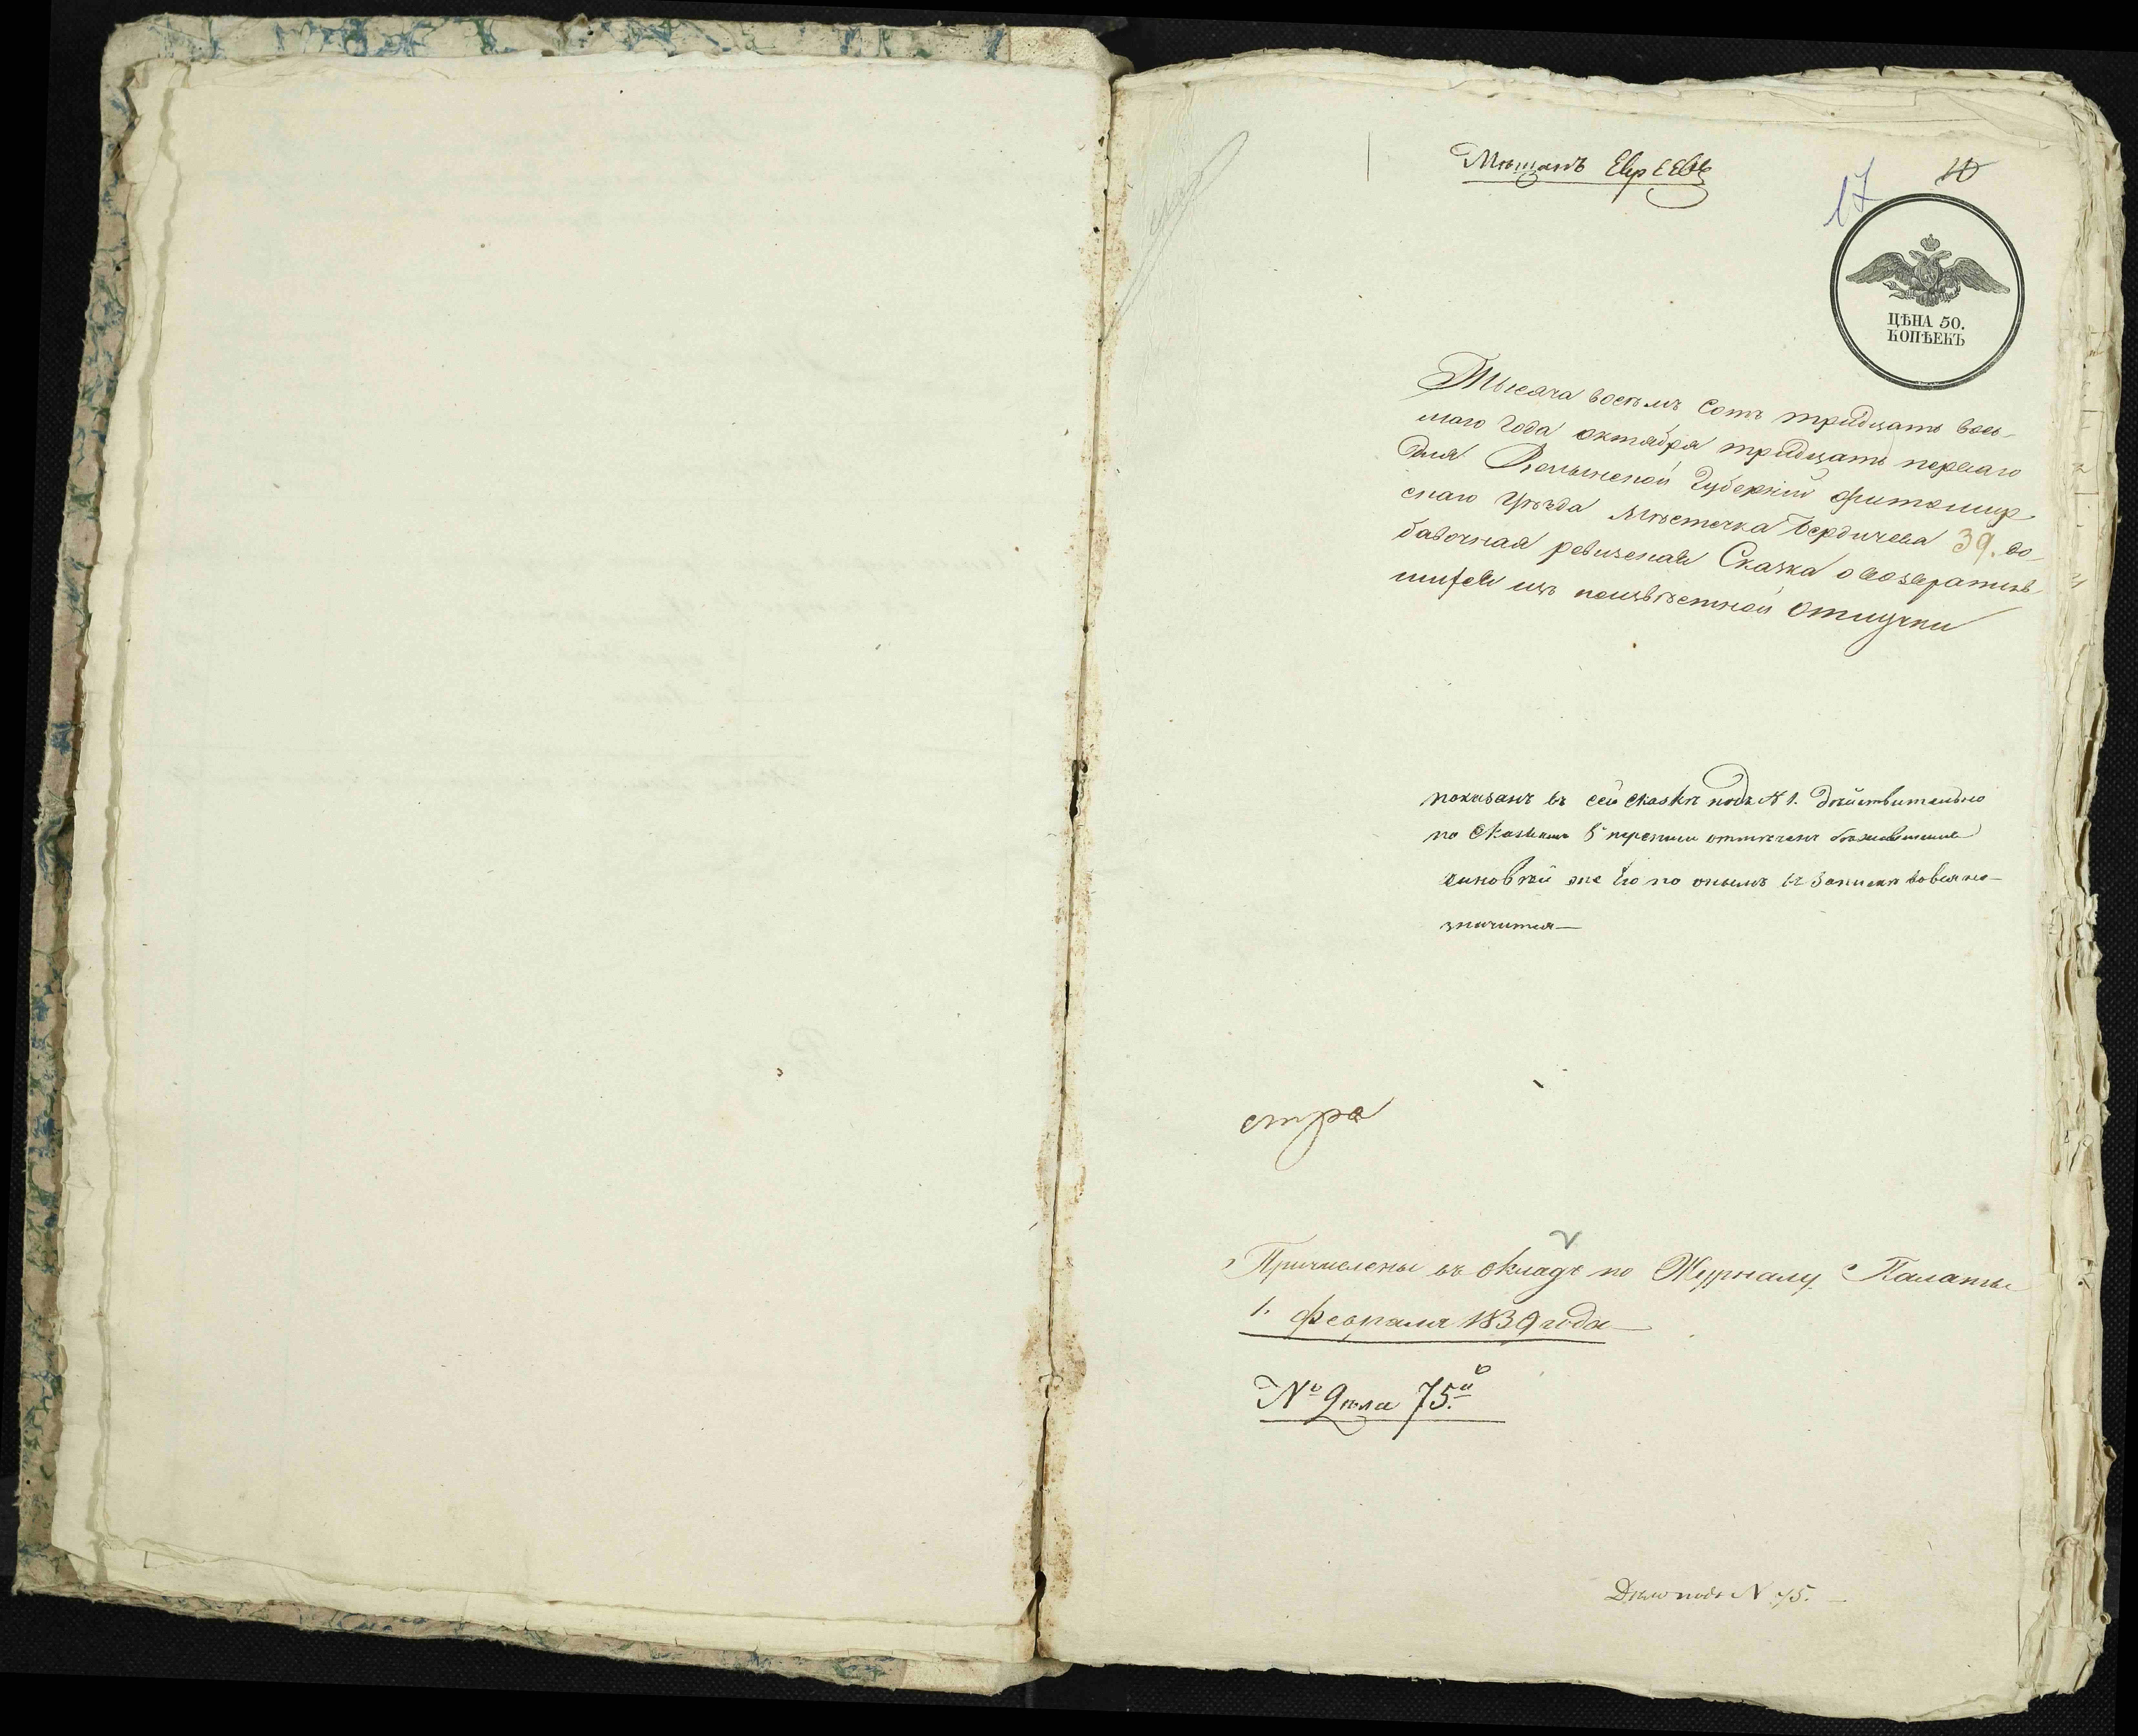 Мѣщанъ Евреевъ
17
10
ЦѢНА 50.
КОПѢЕКЪ
Тысяча восемъ сотъ тридцать вось-
маго года октября тридцать перваго
дня Волынской Губерніи Житомир
скаго Уѣзда Мѣстечка Бердичева 39. до-
бавочная ревизская Сказка о возвратив
шихся изъ неизвѣстной отлучки
показанъ въ сей сказкѣ подъ № 1. дѣйствительно
по Сказкамъ 5 переписи отмѣченъ бѣжавшимъ
сыновѣй же его по онымъ въ запискѣ вовся не-
значится—
стра
Причислены въ окладъ по Журналу Палаты
1. Февраля 1839 года
№ Дѣла 75.й
Дѣло подъ N 75. —